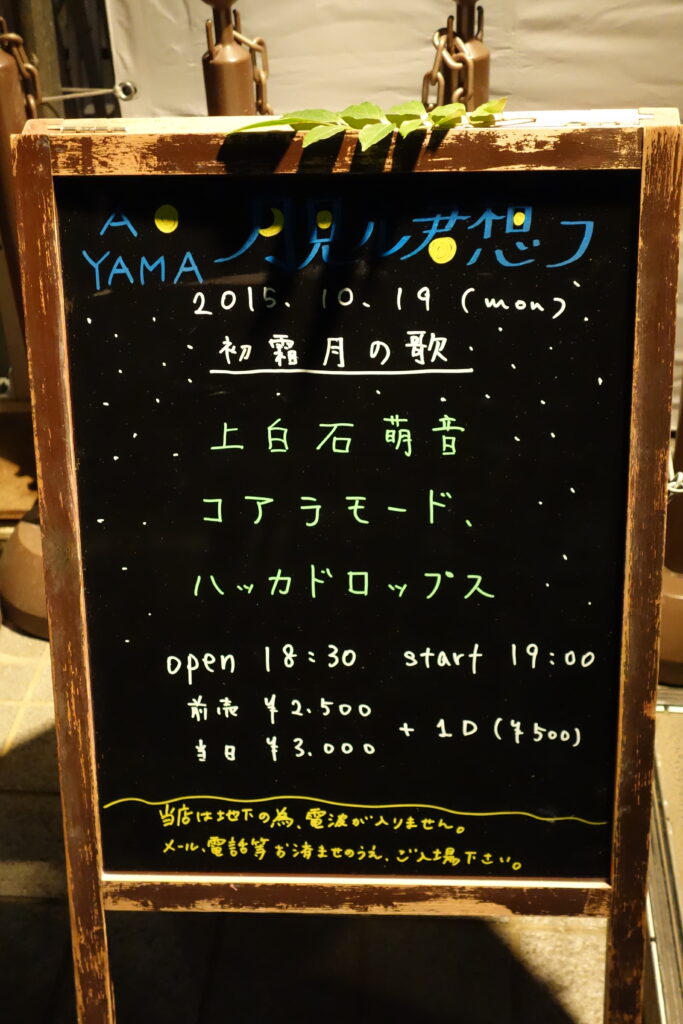 AO YAMA 月見ル君想フ
2015. 10. 19 (mon)
初霜月の歌
上白石萌音
コアラモード、
ハッカドロップス
open 18:30 start 19:00
前売 ¥2.500
当日 ¥3.000
+ 1D (¥500)
当店は地下の為、電波が入りません。
メール、電話等お済ませのうえ、ご入場下さい。